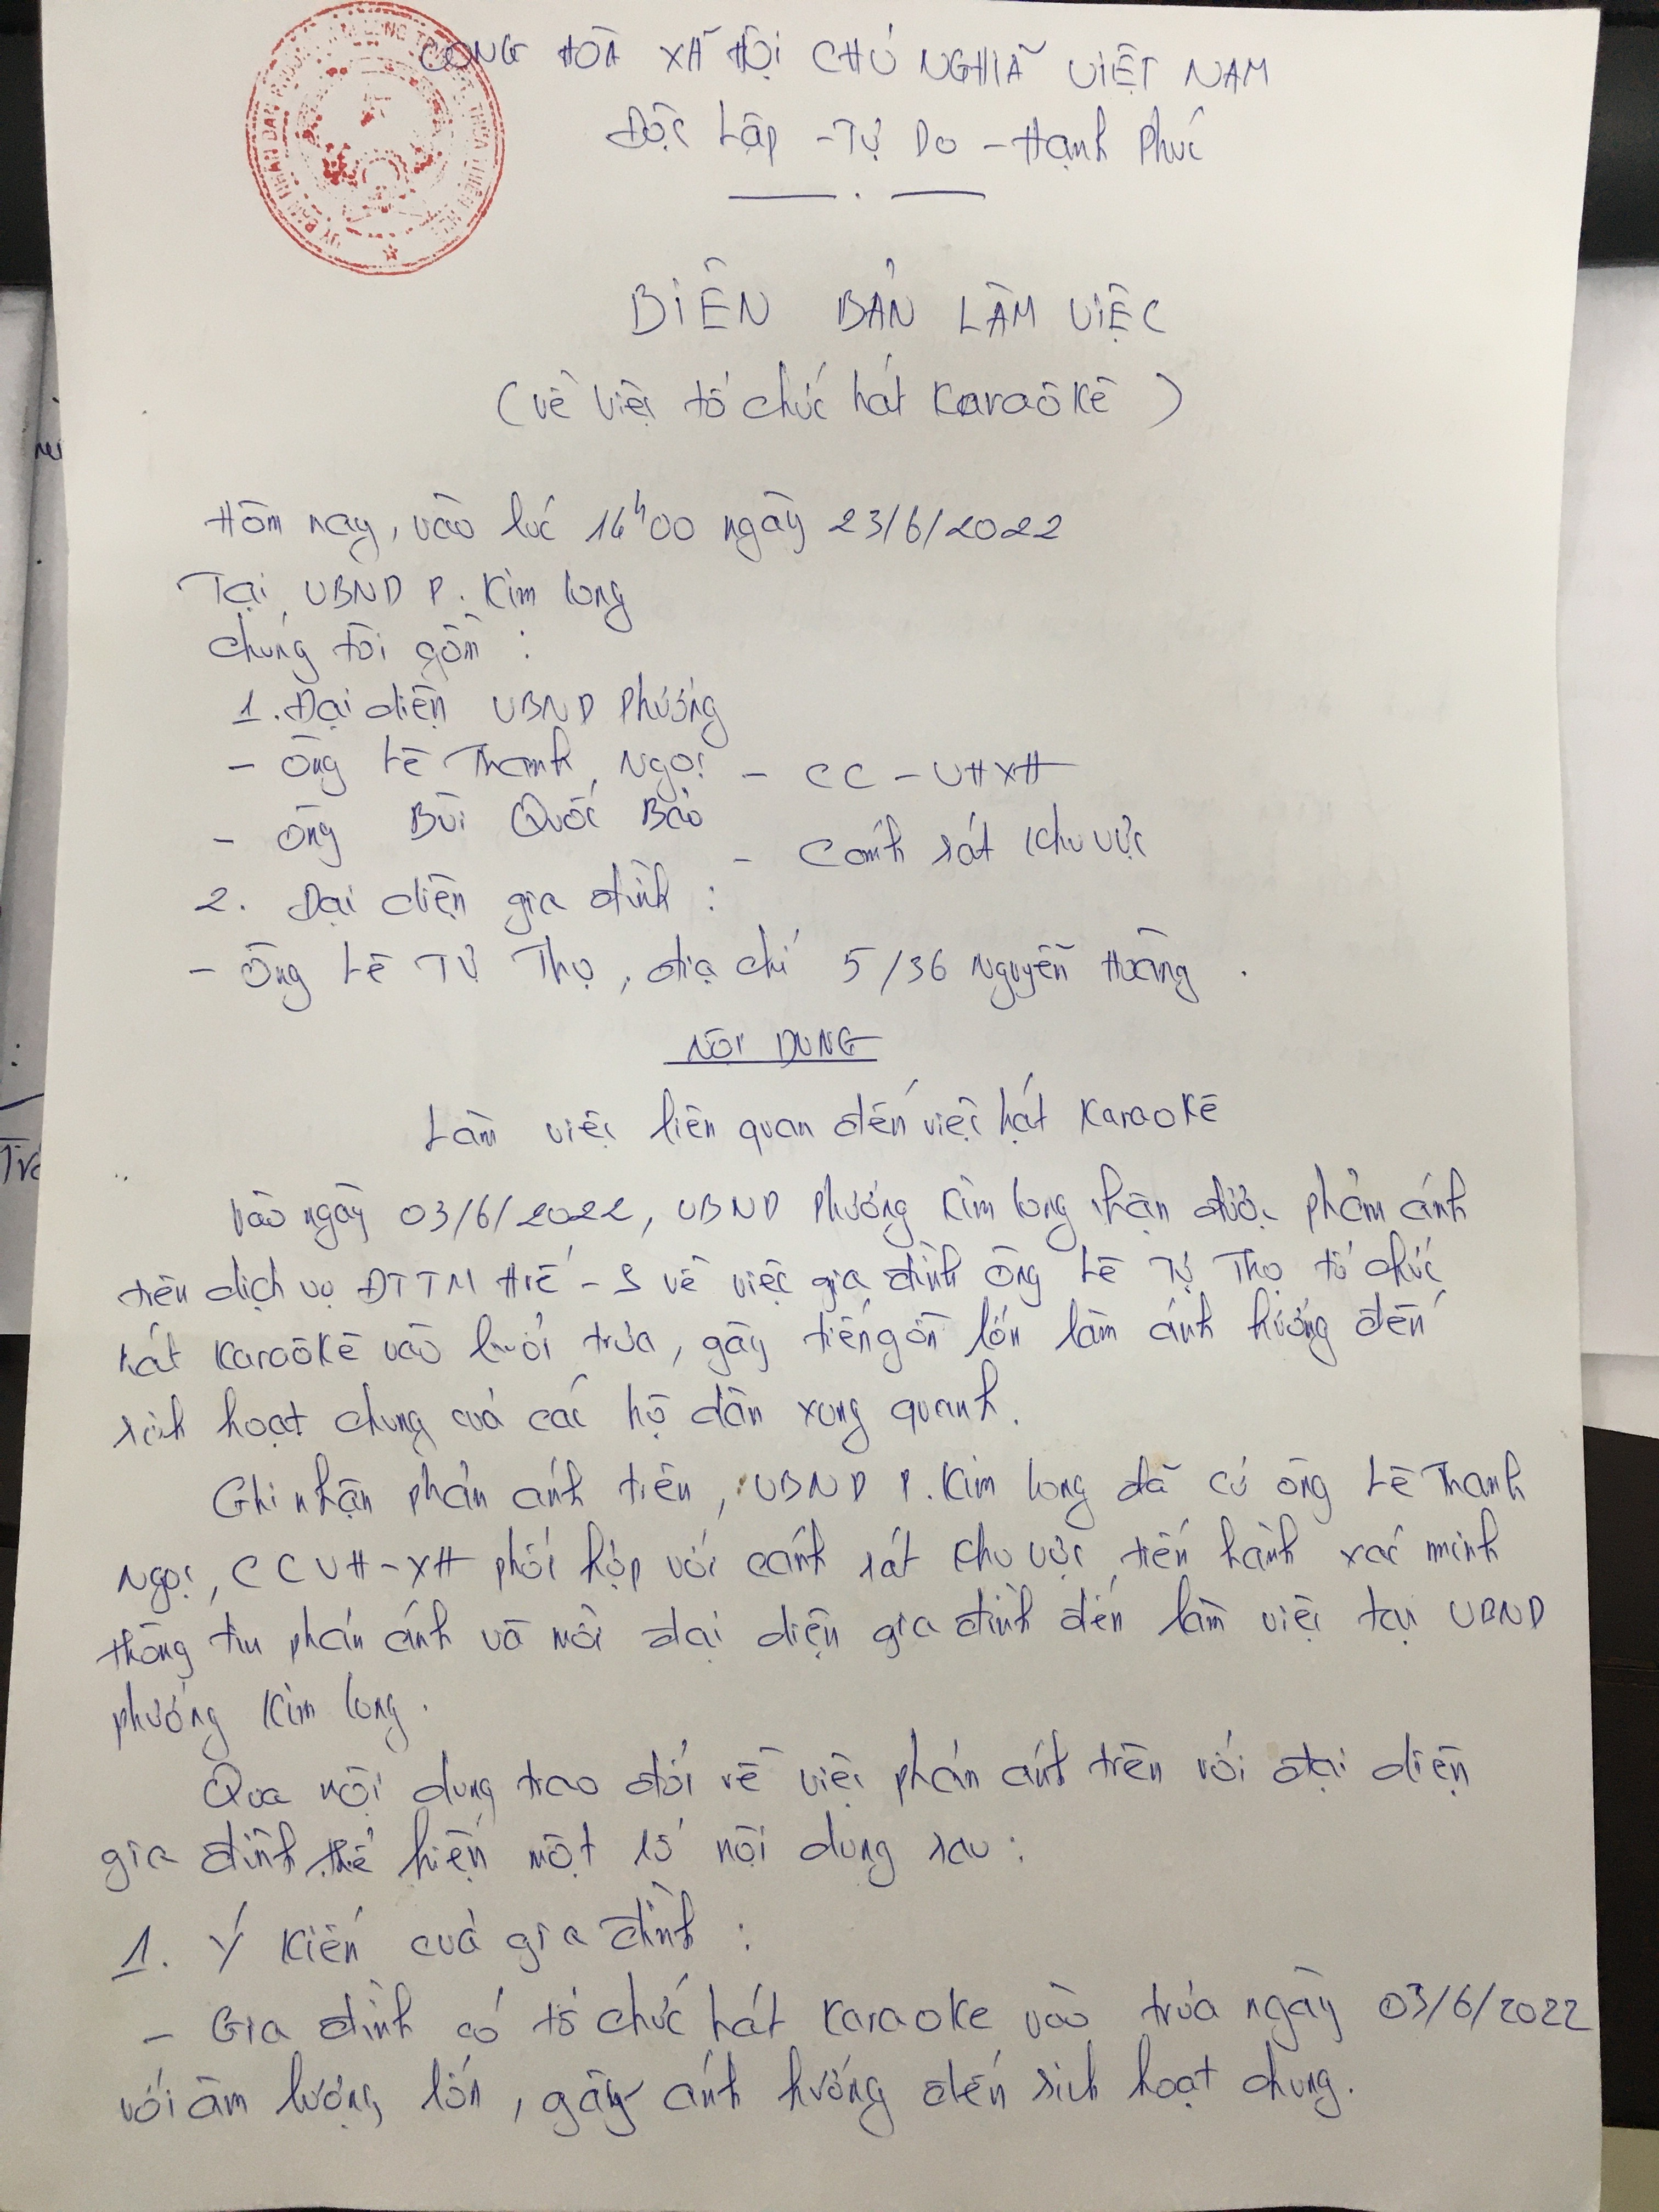 CỘNG HÒA XÃ HỘI CHỦ NGHĨA VIỆT NAM
Độc Lập - Tự Do - Hạnh Phúc
BIÊN BẢN LÀM VIỆC
(Về việc tổ chức hát Karaôkê)
Hôm nay, vào lúc 14h00 ngày 23/6/2022
Tại UBND P. Kim Long
Chúng tôi gồm :
1. Đại diện UBND Phường
- Ông Lê Thanh Ngọc - CC - VHXH
- Ông Bùi Quốc Bảo - Cảnh sát khu vực
2. Đại diện gia đình :
- Ông Lê Tự Thọ, địa chỉ 5/36 Nguyễn Hoàng.
NỘI DUNG
Làm việc liên quan đến việc hát Karaokê
Vào ngày 03/6/2022, UBND Phường Kim Long nhận được phản ánh
trên dịch vụ ĐTTM Huế - S về việc gia đình Ông Lê Tự Thọ tổ chức
hát Karaôkê vào buổi trưa, gây tiếng ồn lớn làm ảnh hưởng đến
sinh hoạt chung của các hộ dân xung quanh.
Ghi nhận phản ánh trên, UBND P. Kim Long đã cử ông Lê Thanh
Ngọc, CC VH-XH phối hợp với cảnh sát khu vực tiến hành xác minh
thông tin phản ánh và mời đại diện gia đình đến làm việc tại UBND
phường Kim Long.
Qua nội dung trao đổi về việc phản ánh trên với đại diện
gia đình thể hiện một số nội dung sau :
1. Ý kiến của gia đình :
- Gia đình có tổ chức hát Karaoke vào trưa ngày 03/6/2022
với âm lượng lớn, gây ảnh hưởng đến sinh hoạt chung.